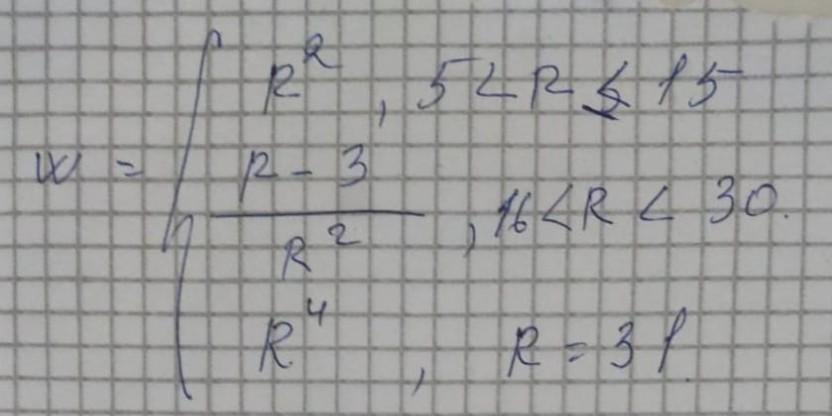 R², 5 < R ≤ 15
w = { (R - 3) / R², 16 < R < 30.
R⁴, R = 31